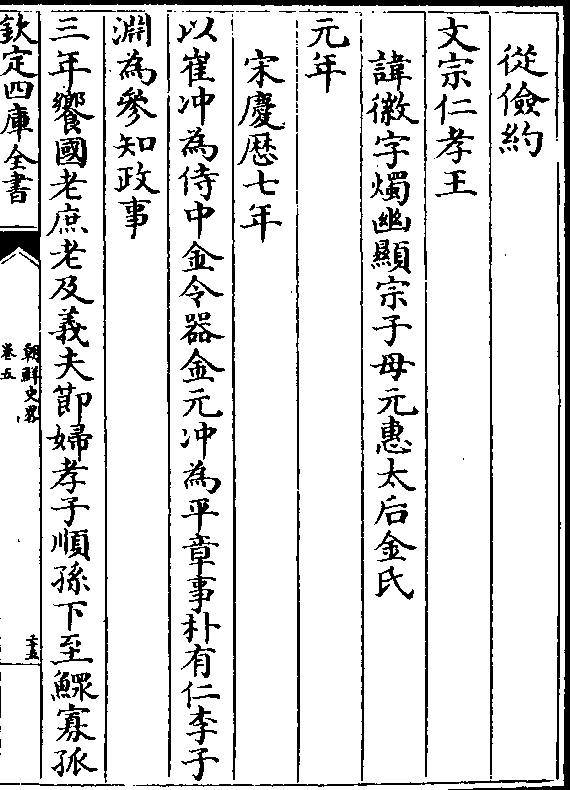 從儉約
文宗仁孝王
諱徽字燭幽顯宗子母元惠太后金氏
元年
宋慶歴七年
以崔冲為侍中金令器金元冲為平章事朴有仁李子
淵為參知政事
三年饗國老庶老及義夫節婦孝子順孫下至鰥寡孤
欽定四庫全書
朝鮮史畧
卷五
三五